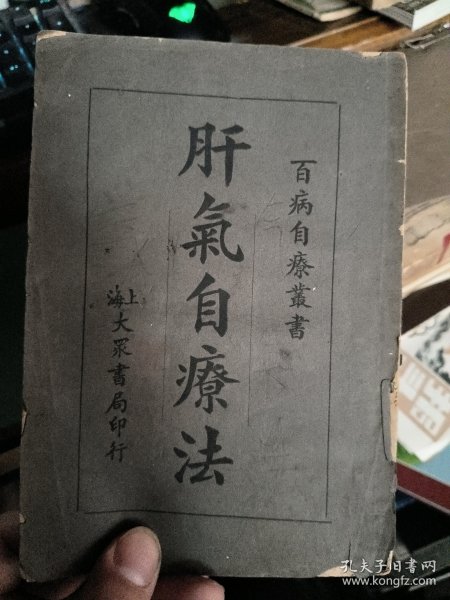 百病自療叢書
肝氣自療法
上海大眾書局印行
孔夫子旧书网
www.kongfz.com